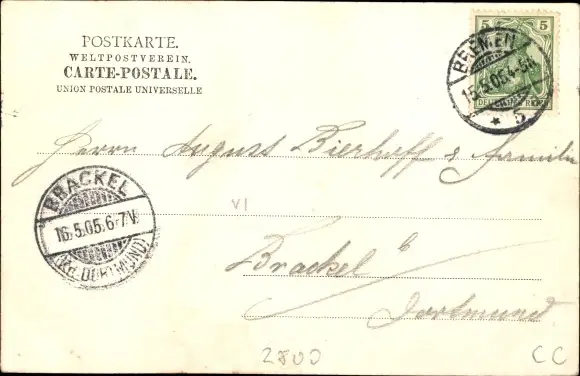 POSTKARTE.
WELTPOSTVEREIN.
CARTE-POSTALE.
UNION POSTALE UNIVERSELLE
5 5
DEUTSCHES REICH
BREMEN
15.5.05.4-5N.
* 5
Herrn August Bierhoff & Familie
BRACKEL
16.5.05.6-7V.
(Kr. DORTMUND)
VI
Brackel b
Dortmund
2800
CC